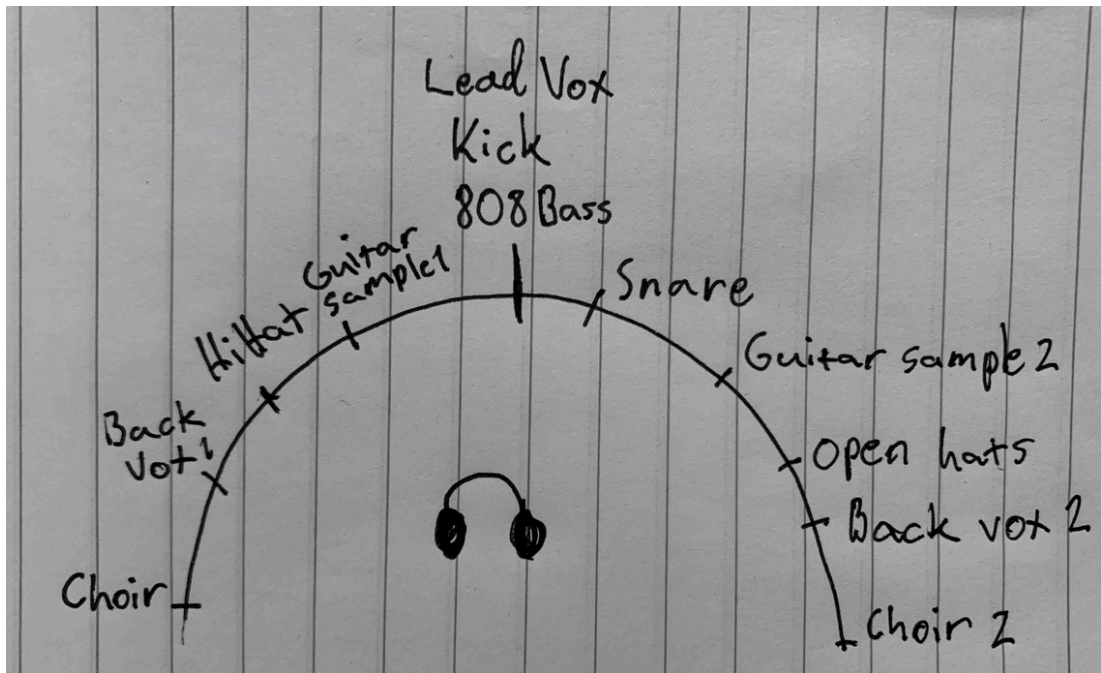 Lead Vox
Kick
808 Bass
Guitar
sample1
HiHat
Back
vox 1
Choir
Snare
Guitar sample 2
open hats
Back vox 2
Choir 2